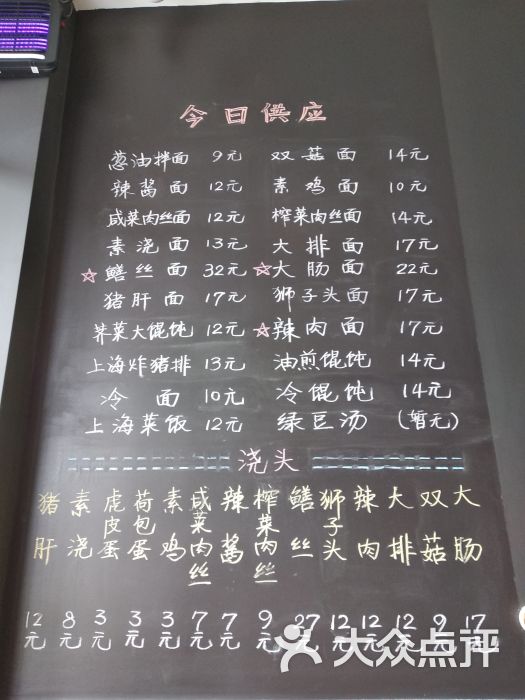 今日供应
葱油拌面 9元 双菇面 14元
辣酱面 12元 素鸡面 10元
咸菜肉丝面 12元 榨菜肉丝面 14元
素浇面 13元 大排面 17元
☆鳝丝面 32元 ☆大肠面 22元
猪肝面 17元 狮子头面 17元
荠菜大馄饨 12元 ☆辣肉面 17元
上海炸猪排 13元 油煎馄饨 14元
冷面 10元 冷馄饨 14元
上海菜饭 12元 绿豆汤 (暂无)
浇头
猪肝 12元
素浇 8元
虎皮蛋 3元
荷包蛋 3元
素鸡 3元
咸菜肉丝 7元
辣酱 7元
榨菜肉丝 9元
鳝丝 27元
狮子头 12元
辣肉 12元
大排 12元
双菇 9元
大肠 17元
大众点评